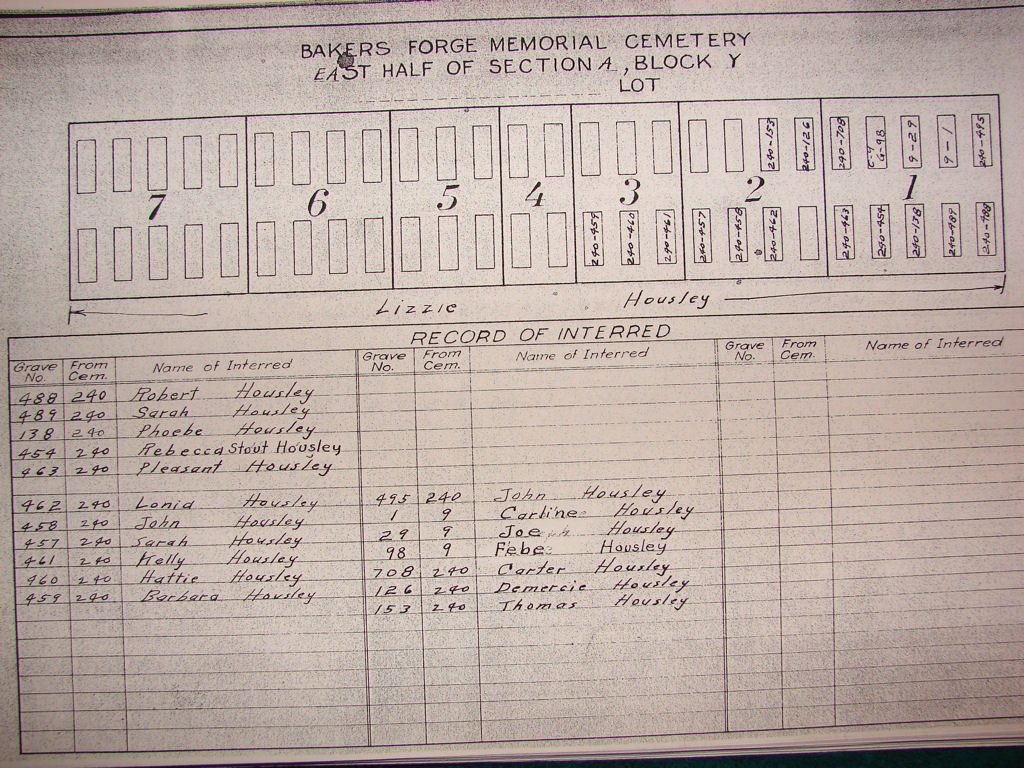 BAKERS FORGE MEMORIAL CEMETERY
EAST HALF OF SECTION A, BLOCK Y
LOT
240-153 240-126 240-708 G-98 9-29 9-1 240-495
7 6 5 4 3 2 1
240-459 240-460 240-461 240-457 240-458 240-462 240-463 240-454 240-138 240-489 240-488
Lizzie Housley
RECORD OF INTERRED
Grave No. From Cem. Name of Interred Grave No. From Cem. Name of Interred Grave No. From Cem. Name of Interred
488 240 Robert Housley
489 240 Sarah Housley
138 240 Phoebe Housley
454 240 Rebecca Stout Housley
463 240 Pleasant Housley
462 240 Lonid Housley 495 240 John Housley
458 240 John Housley 1 9 Carline Housley
457 240 Sarah Housley 29 9 Joe Housley
461 240 Kelly Housley 98 9 Febe Housley
460 240 Hattie Housley 708 240 Carter Housley
459 240 Barbara Housley 126 240 Demercie Housley
153 240 Thomas Housley